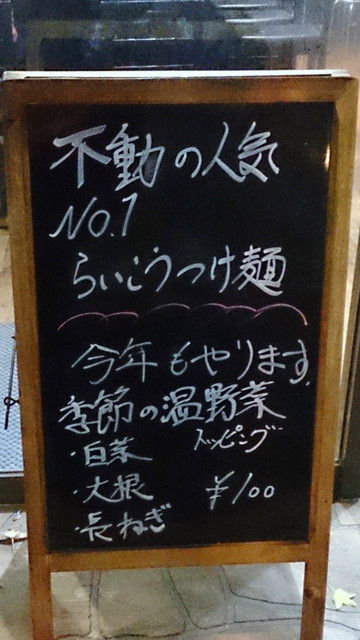 不動の人気
No.1
らいこうつけ麺
今年もやります
季節の温野菜
トッピング
・白菜
・大根 ¥100
・長ねぎ